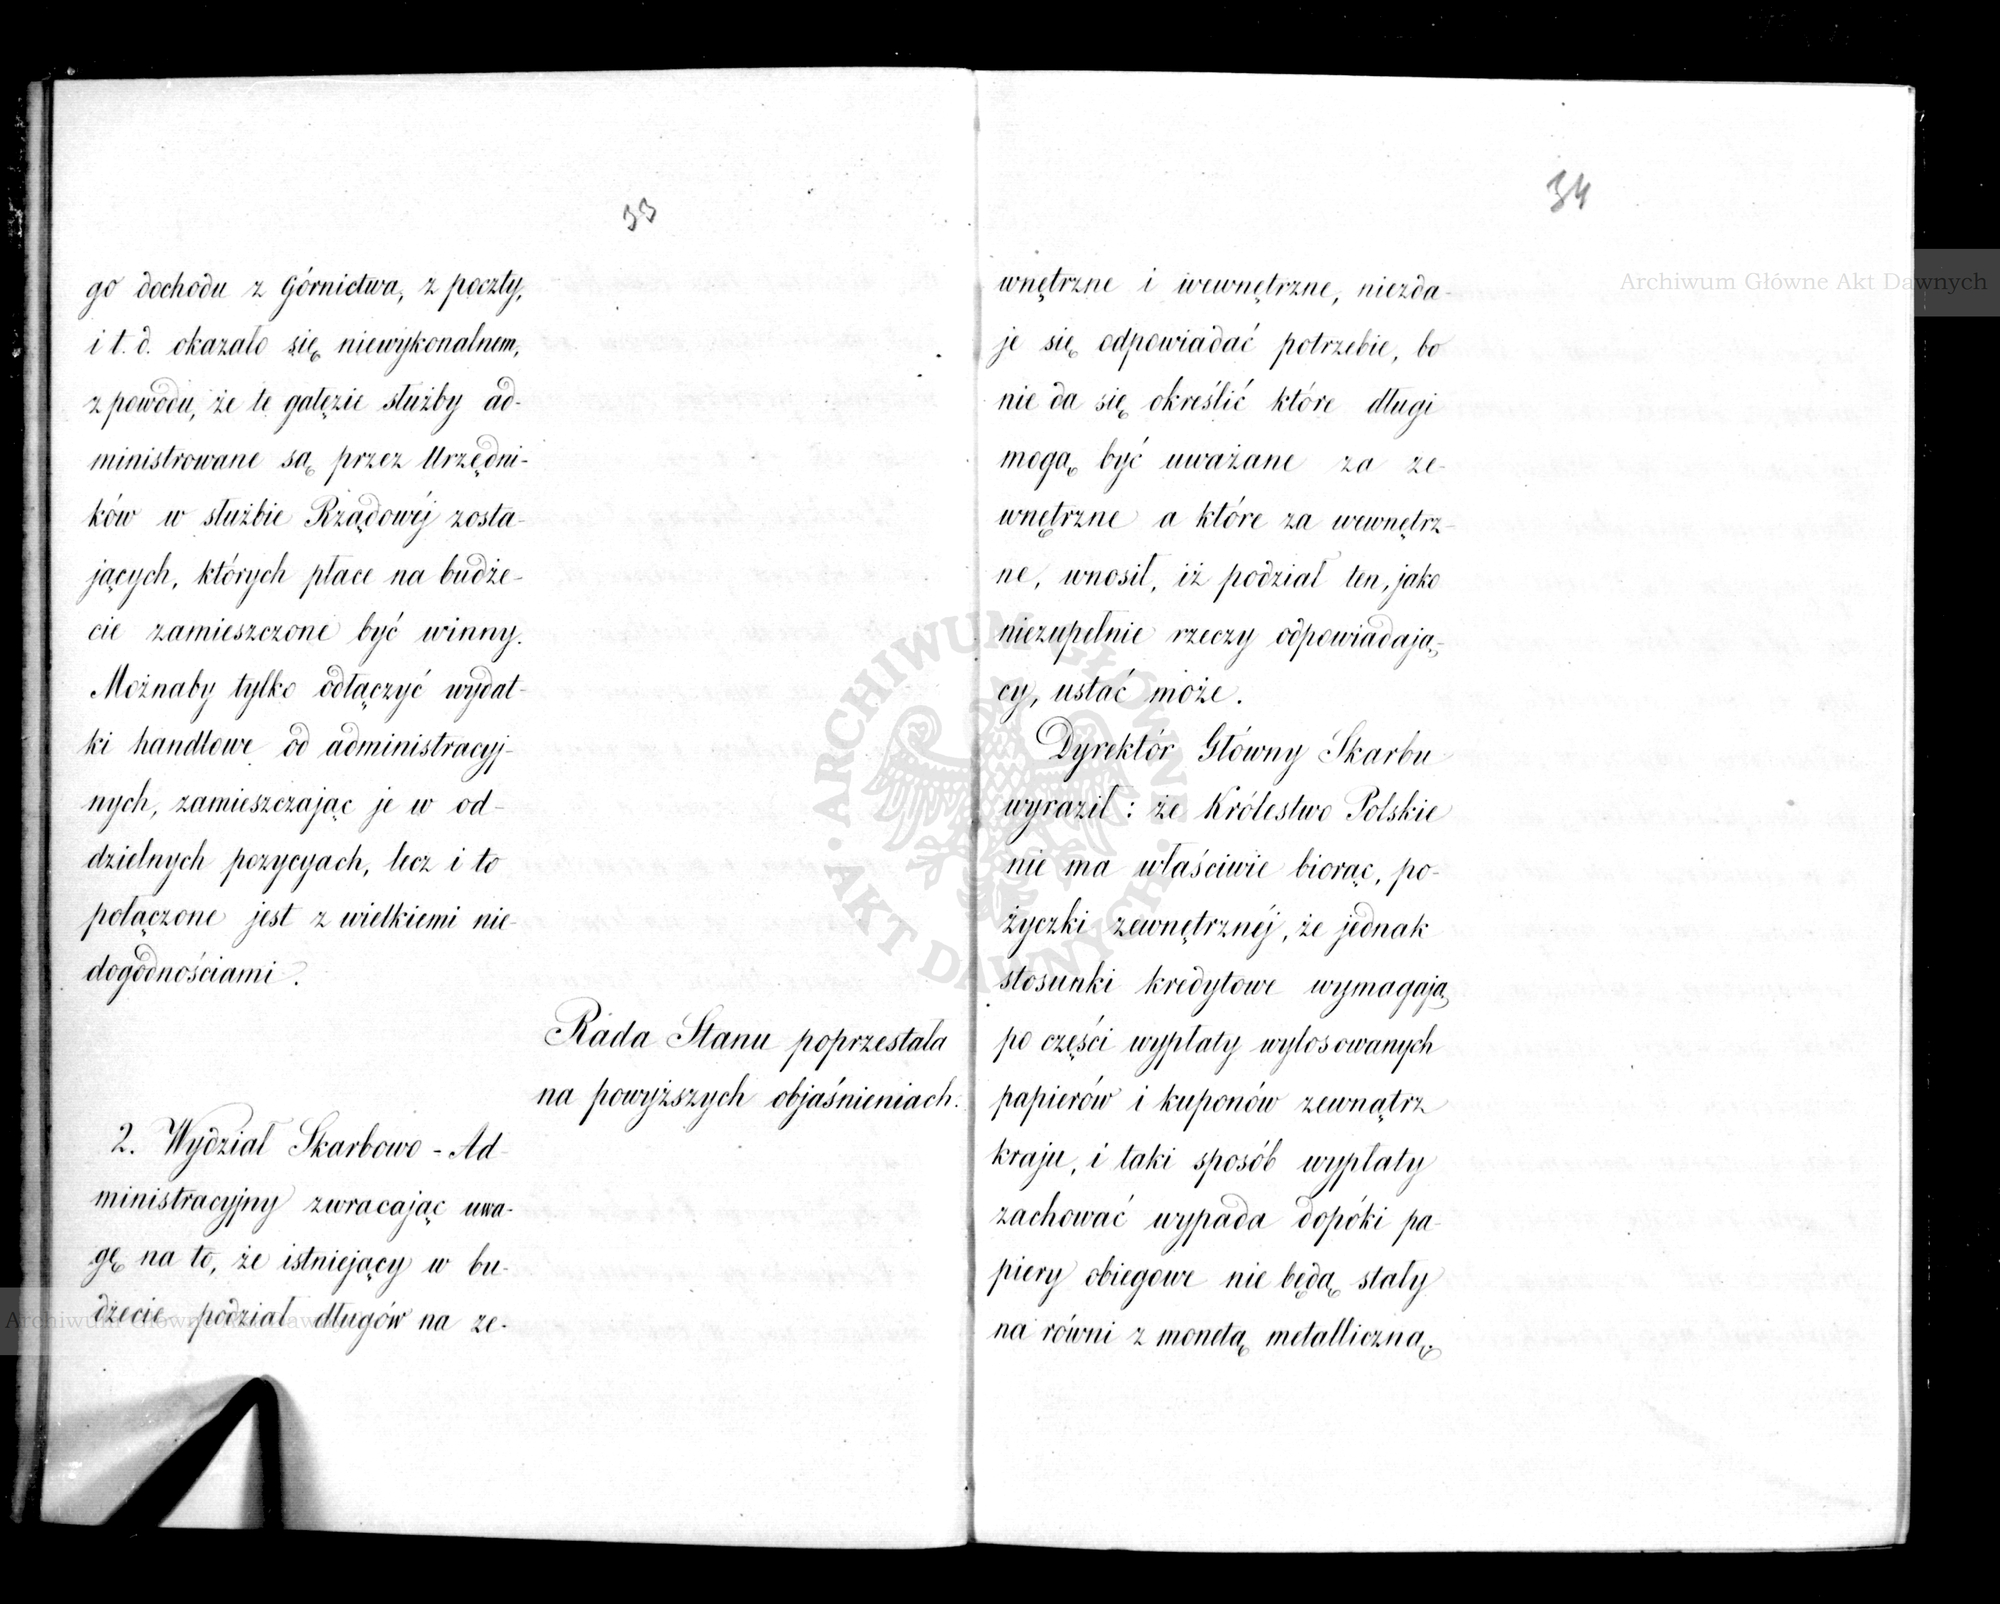 33
go dochodu z Górnictwa, z poczty,
i t. d. okazało się niewykonalnem,
z powodu, że te gałęzie służby ad-
ministrowane są przez Urzędni-
ków w służbie Rządowéj zosta-
jących, których płace na budże-
cie zamieszczone być winny.
Możnaby tylko odłączyć wydat-
ki handlowe od administracyj-
nych, zamieszczając je w od-
dzielnych pozycyach, lecz i to
połączone jest z wielkiemi nie-
dogodnościami.
Rada Stanu poprzestała
na powyższych objaśnieniach.
2. Wydział Skarbowo-Ad-
ministracyjny zwracając uwa-
gę na to, że istniejący w bu-
dżecie podział długów na ze-
34
wnętrzne i wewnętrzne, niezda-
je się odpowiadać potrzebie, bo
nie da się określić które długi
mogą być uważane za ze-
wnętrzne a które za wewnętrz-
ne, wnosił, iż podział ten, jako
niezupełnie rzeczy odpowiadają-
cy, ustać może.
Dyrektór Główny Skarbu
wyraził: że Królestwo Polskie
nie ma właściwie biorąc, po-
życzki zewnętrznéj, że jednak
stosunki kredytowe wymagają
po części wypłaty wylosowanych
papierów i kuponów zewnątrz
kraju, i taki sposób wypłaty
zachować wypada dopóki pa-
piery obiegowe nie będą stały
na równi z monetą metalliczną.
Archiwum Główne Akt Dawnych
Archiwum Główne Akt Dawnych
ARCHIWUM GŁÓWNE AKT DAWNYCH